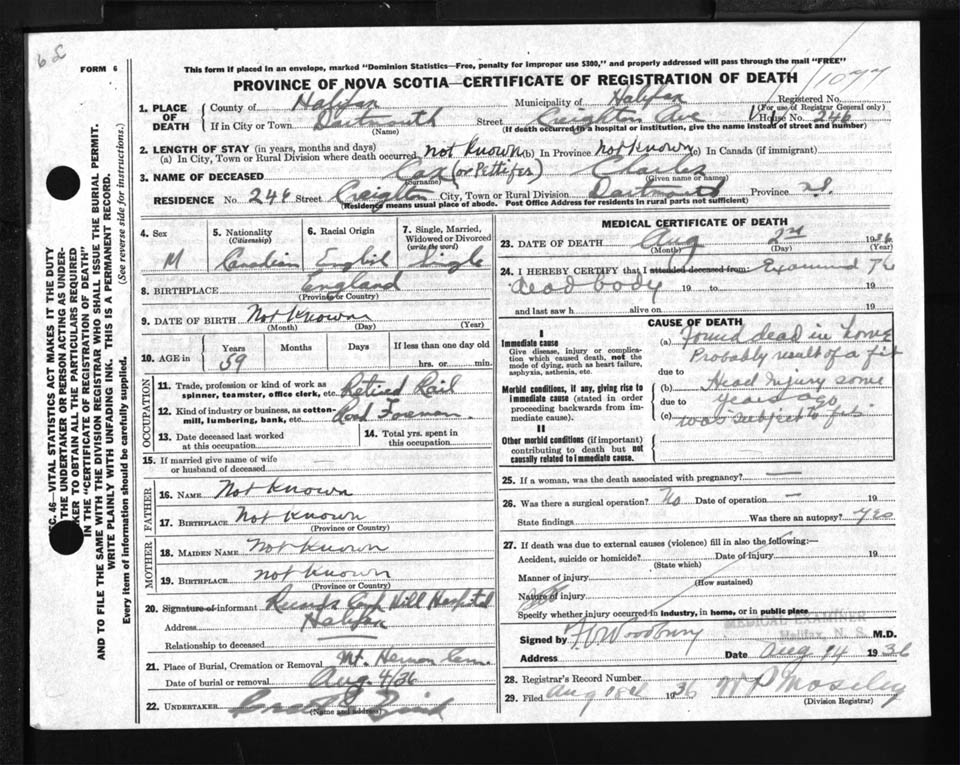 68
FORM 6
This form if placed in an envelope, marked "Dominion Statistics—Free, penalty for improper use $300," and properly addressed will pass through the mail "FREE"
PROVINCE OF NOVA SCOTIA—CERTIFICATE OF REGISTRATION OF DEATH
1077
Registered No.
(For use of Registrar General only)
1. PLACE OF DEATH
County of Halifax
Municipality of Halifax
If in City or Town Dartmouth
(Name)
Street Creighton Ave
House No. 246
(If death occurred in a hospital or institution, give the name instead of street and number)
2. LENGTH OF STAY (in years, months and days)
(a) In City, Town or Rural Division where death occurred not known (b) In Province not known (c) In Canada (if immigrant)
3. NAME OF DECEASED Cox (or Pettifer) Charles
(Surname) (Given name or names)
RESIDENCE No. 246 Street Creighton City, Town or Rural Division Dartmouth Province N.S.
(Residence means usual place of abode. Post Office Address for residents in rural parts not sufficient)
4. Sex
M
5. Nationality
(Citizenship)
Canadian
6. Racial Origin
English
7. Single, Married, Widowed or Divorced
(write the word)
Single
8. BIRTHPLACE England
(Province or Country)
9. DATE OF BIRTH Not Known
(Month) (Day) (Year)
10. AGE in
Years Months Days If less than one day old
59
hrs. or min.
OCCUPATION
11. Trade, profession or kind of work as spinner, teamster, office clerk, etc. Retired Rail
12. Kind of industry or business, as cotton-mill, lumbering, bank, etc. Road Foreman.
13. Date deceased last worked at this occupation
14. Total yrs. spent in this occupation
15. If married give name of wife or husband of deceased
FATHER
16. NAME Not Known
17. BIRTHPLACE Not Known
(Province or Country)
MOTHER
18. MAIDEN NAME Not Known
19. BIRTHPLACE not known
(Province or Country)
20. Signature of informant Records Camp Hill Hospital
Address Halifax
Relationship to deceased
21. Place of Burial, Cremation or Removal Mt. Hermon Cem.
Date of burial or removal Aug. 4/36
22. UNDERTAKER
(Name and address)
MEDICAL CERTIFICATE OF DEATH
23. DATE OF DEATH Aug 2nd 1936
(Month) (Day) (Year)
24. I HEREBY CERTIFY that I attended deceased from: Examined The
dead body 19 to 19
and last saw h alive on 19
CAUSE OF DEATH
I
Immediate cause
Give disease, injury or complication which caused death, not the mode of dying, such as heart failure, asphyxia, asthenia, etc.
(a) Found dead in home
Probably result of a fit
due to
Morbid conditions, if any, giving rise to immediate cause (stated in order proceeding backwards from immediate cause).
(b) Head Injury some
due to years ago
(c) was subject to fits.
II
Other morbid conditions (if important) contributing to death but not causally related to immediate cause.
25. If a woman, was the death associated with pregnancy?
26. Was there a surgical operation? No Date of operation — 19
State findings Was there an autopsy? Yes
27. If death was due to external causes (violence) fill in also the following:—
Accident, suicide or homicide? Date of injury 19
(State which)
Manner of injury
(How sustained)
Nature of injury
Specify whether injury occurred in industry, in home, or in public place
MEDICAL EXAMINER
Halifax, N. S.
Signed by Woodbury M.D.
Address Date Aug 14 1936
28. Registrar's Record Number
29. Filed Aug 18th 1936 W P Moseley
(Division Registrar)
SEC. 46—VITAL STATISTICS ACT MAKES IT THE DUTY
THE UNDERTAKER OR PERSON ACTING AS UNDER-
KER TO OBTAIN ALL THE PARTICULARS REQUIRED
IN THE "CERTIFICATE OF REGISTRATION OF DEATH"
AND TO FILE THE SAME WITH THE DIVISION REGISTRAR WHO SHALL ISSUE THE BURIAL PERMIT.
WRITE PLAINLY WITH UNFADING INK. THIS IS A PERMANENT RECORD.
Every item of information should be carefully supplied. (See reverse side for instructions.)